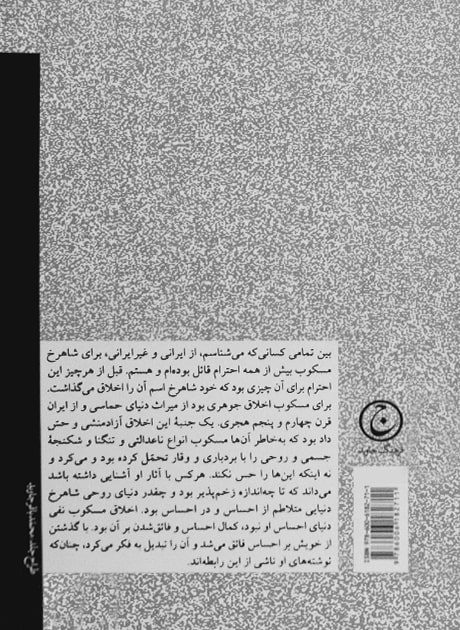 بین تمامی کسانی‌که می‌شناسم، از ایرانی و غیرایرانی، برای شاهرخ
مسکوب بیش از همه احترام قائل بوده‌ام و هستم. قبل از هرچیز این
احترام برای آن چیزی بود که خود شاهرخ اسم آن را اخلاق می‌گذاشت.
برای مسکوب اخلاق جوهری بود از میراث دنیای حماسی و از ایران
قرن چهارم و پنجم هجری. یک جنبهٔ این اخلاق آزادمنشی و حسّ
داد بود که به‌خاطر آن‌ها مسکوب انواع ناعدالتی و تنگنا و شکنجهٔ
جسمی و روحی را با بردباری و وقار تحمّل کرده بود و می‌کرد و
نه اینکه این‌ها را حس نکند. هرکس با آثار او آشنایی داشته باشد
می‌داند که تا چه‌اندازه زخم‌پذیر بود و چقدر دنیای روحی شاهرخ
دنیایی متلاطم از احساس و در احساس بود. اخلاق مسکوب نفی
دنیای احساس او نبود، کمال احساس و فائق‌شدن بر آن بود. با گذشتن
از خویش بر احساس فائق می‌شد و آن را تبدیل به فکر می‌کرد، چنان‌که
نوشته‌های او ناشی از این رابطه‌اند.
فرهنگ جاوید
طراح جلد: محمدباقر جاوید